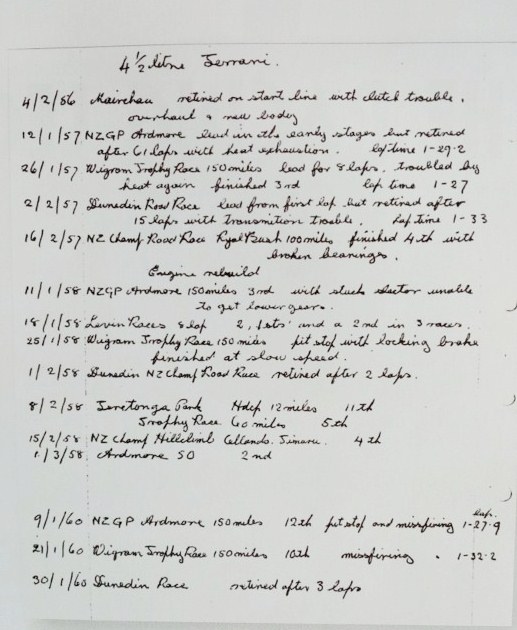 4 ½ litre Ferrari.
4/2/56 Mairehau retired on start line with clutch trouble.
overhaul & new body
12/1/57 NZGP Ardmore lead in the early stages but retired
after 61 laps with heat exhaustion. lap time 1-29-2
26/1/57 Wigram Trophy Race 150 miles lead for 8 laps. troubled by
heat again finished 3rd lap time 1-27
2/2/57 Dunedin Road Race lead from first lap but retired after
15 laps with transmition trouble. Lap time 1-33
16/2/57 NZ Champ Road Race Ryal Bush 100 miles finished 4th with
broken bearings.
Engine rebuild
11/1/58 NZGP Ardmore 150 miles 3rd with stuck selector unable
to get lower gears.
18/1/58 Levin Races 8 lap 2, 1sts' and a 2nd in 3 races.
25/1/58 Wigram Trophy Race 150 miles pit stop with locking brake
finished at slow speed.
1/2/58 Dunedin NZ Champ Road Race retired after 2 laps.
8/2/58 Teretonga Park Hdcp 12 miles 11th
Trophy Race 60 miles 5th
15/2/58 NZ Champ Hillclimb Timaru. 4th
1/3/58 Ardmore 50 2nd
9/1/60 NZGP Ardmore 150 miles 12th pit stop and missfiring 1-27.9
21/1/60 Wigram Trophy Race 150 miles 10th missfiring . 1-32.2
30/1/60 Dunedin Race retired after 3 laps